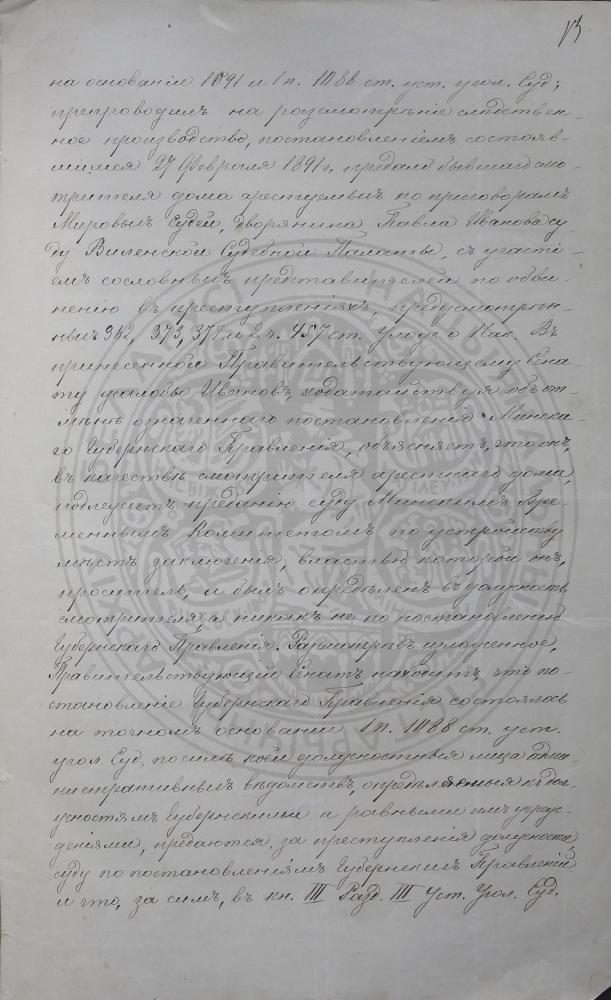 13
на основаніи 1091 и 1 п. 1088 ст. уст. угол. Суд;
препроводилъ на разсмотрѣніе слѣдствен-
ное производство, постановленіемъ состояв-
шимся 27 Февраля 1891 г. предало бывшаго смо-
трителя дома арестуемыхъ по приговорамъ
Мировыхъ Судей, дворянина Павла Иванова су-
ду Виленской Судебной Палаты, съ участі-
емъ сословныхъ представителей по обви-
ненію въ преступленіяхъ, предусмотрѣн-
ныхъ 342, 373, 377 и 2 ч. 457 ст. Улож. о Нак. Въ
принесенной Правительствующему Сена-
ту жалобѣ Ивановъ, ходатайствуя объ от-
мѣнѣ означеннаго постановленія Минска-
го Губернскаго Правленія, объясняетъ, что онъ,
въ качествѣ смотрителя арестнаго дома,
подлежитъ преданію суду Минскимъ Вре-
меннымъ Комитетомъ по устройству
мѣстъ заключенія, властью которой онъ,
проситель, и былъ опредѣленъ въ должность
смотрителя, а никакъ не по постановленію
Губернскаго Правленія. Разсмотрѣвъ изложенное,
Правительствующій Сенатъ находитъ, что по-
становленіе Губернскаго Правленія состоялось
на точномъ основаніи 1 п. 1088 ст. уст.
угол. Суд, по силѣ коей должностныя лица адми-
нистративныхъ вѣдомствъ, опредѣляемыя къ дол-
жностямъ Губернскими и равными имъ учреж-
деніями, предаются, за преступленія должности,
суду по постановленіямъ Губернскихъ Правленій
и что, за симъ, въ кн. III Разд. III Уст. Угол. Суд.